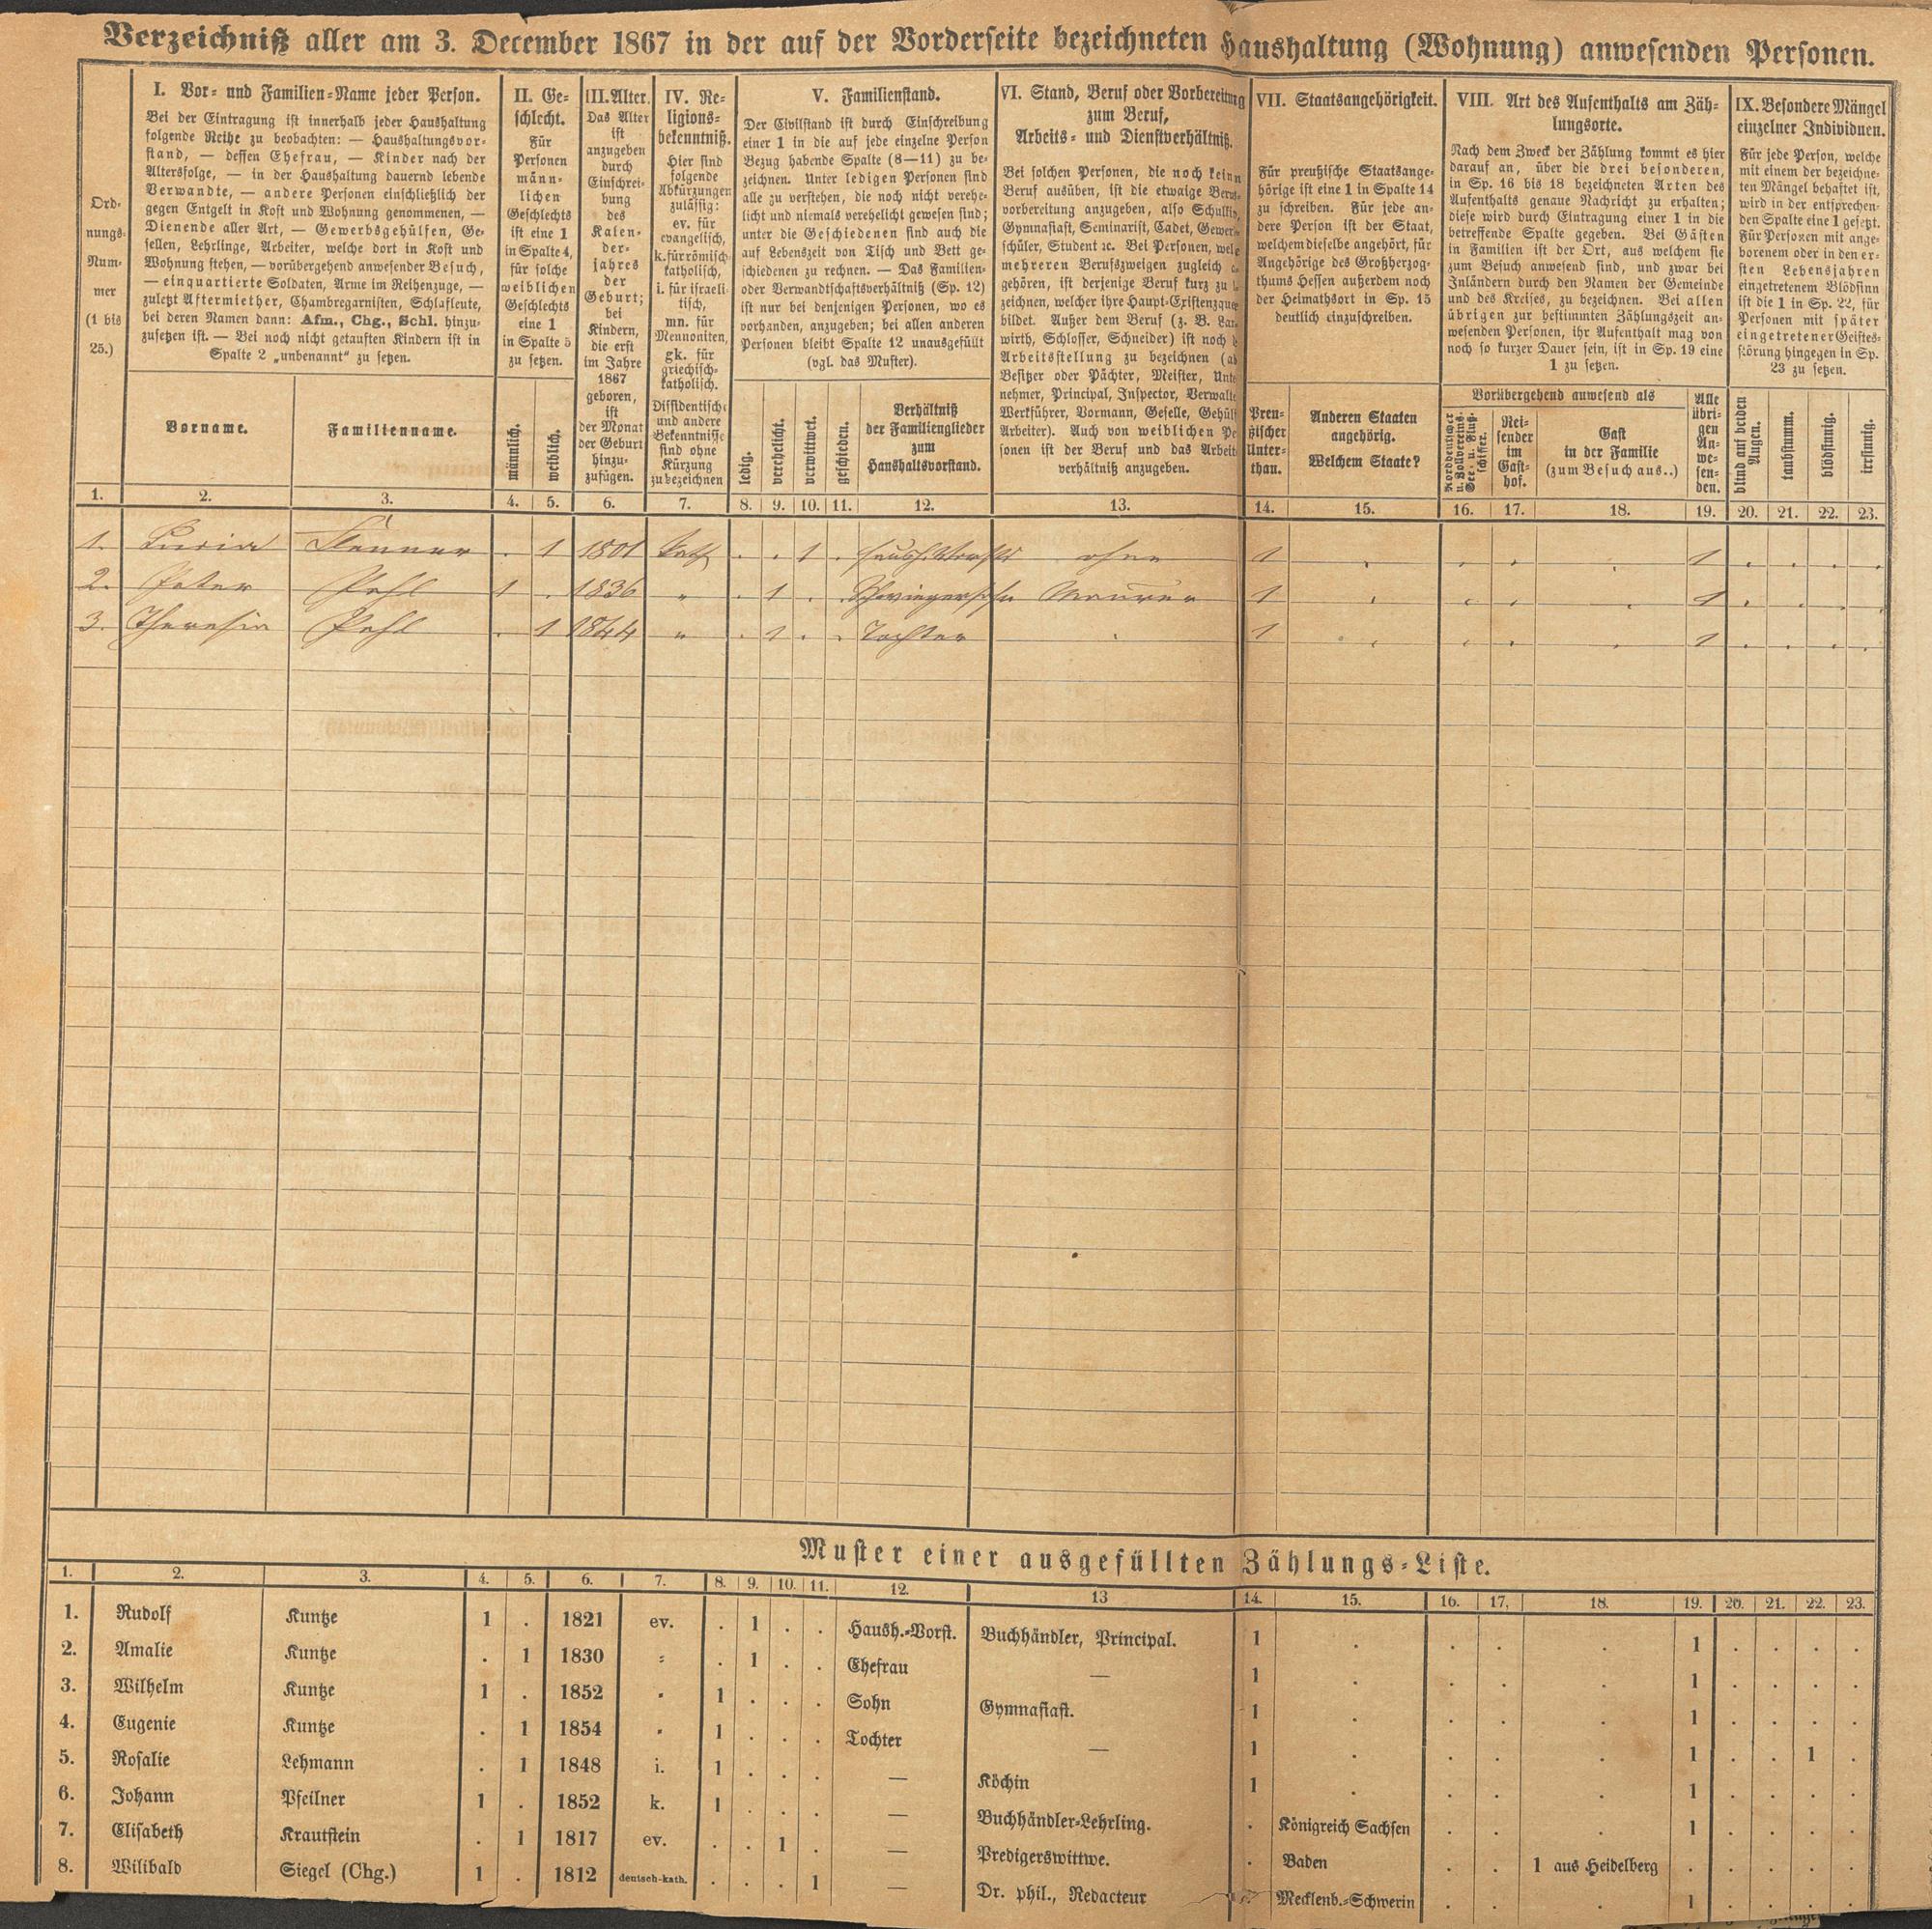 Verzeichniß aller am 3. December 1867 in der auf der Vorderseite bezeichneten Haushaltung (Wohnung) anwesenden Personen.
Ord-
nungs-
Num-
mer
(1 bis
25.)
I. Vor- und Familien-Name jeder Person.
Bei der Eintragung ist innerhalb jeder Haushaltung
folgende Reihe zu beobachten: — Haushaltungsvor-
stand, — dessen Ehefrau, — Kinder nach der
Altersfolge, — in der Haushaltung dauernd lebende
Verwandte, — andere Personen einschließlich der
gegen Entgelt in Kost und Wohnung genommenen, —
Dienende aller Art, — Gewerbsgehülfen, Ge-
sellen, Lehrlinge, Arbeiter, welche dort in Kost und
Wohnung stehen, — vorübergehend anwesender Besuch,
— einquartierte Soldaten, Arme im Reihenzuge, —
zuletzt Aftermiether, Chambregarnisten, Schlafleute,
bei deren Namen dann: Afm., Chg., Schl. hinzu-
zusetzen ist. — Bei noch nicht getauften Kindern ist in
Spalte 2 „unbenannt“ zu setzen.
Vorname.
Familienname.
II. Ge-
schlecht.
Für
Personen
männ-
lichen
Geschlechts
ist eine 1
in Spalte 4,
für solche
weiblichen
Geschlechts
eine 1
in Spalte 5
zu setzen.
männlich.
weiblich.
III. Alter.
Das Alter
ist
anzugeben
durch
Einschrei-
bung
des
Kalen-
der-
jahres
der
Geburt;
bei
Kindern,
die erst
im Jahre
1867
geboren,
ist
der Monat
der Geburt
hinzu-
zufügen.
IV. Re-
ligions-
bekenntniß.
Hier sind
folgende
Abkürzungen
zulässig:
ev. für
evangelisch,
k. für römisch-
katholisch,
i. für israeli-
tisch,
mn. für
Mennoniten,
gk. für
griechisch-
katholisch.
Dissidentische
und andere
Bekenntnisse
sind ohne
Kürzung
zu bezeichnen
V. Familienstand.
Der Civilstand ist durch Einschreibung
einer 1 in die auf jede einzelne Person
Bezug habende Spalte (8—11) zu be-
zeichnen. Unter ledigen Personen sind
alle zu verstehen, die noch nicht verehe-
licht und niemals verehelicht gewesen sind;
unter die Geschiedenen sind auch die
auf Lebenszeit von Tisch und Bett ge-
schiedenen zu rechnen. — Das Familien-
oder Verwandtschaftsverhältniß (Sp. 12)
ist nur bei denjenigen Personen, wo es
vorhanden, anzugeben; bei allen anderen
Personen bleibt Spalte 12 unausgefüllt
(vgl. das Muster).
ledig.
verehelicht.
verwittwet.
geschieden.
Verhältniß
der Familienglieder
zum
Haushaltsvorstand.
VI. Stand, Beruf oder Vorbereitung
zum Beruf,
Arbeits- und Dienstverhältniß.
Bei solchen Personen, die noch keinn
Beruf ausüben, ist die etwaige Berufs-
vorbereitung anzugeben, also Schulkind,
Gymnasiast, Seminarist, Cadet, Gewerb-
schüler, Student ꝛc. Bei Personen, welche
mehreren Berufszweigen zugleich
gehören, ist derjenige Beruf kurz zu
zeichnen, welcher ihre Haupt-Existenzquelle
bildet. Außer dem Beruf (z. B. Land-
wirth, Schlosser, Schneider) ist noch
Arbeitsstellung zu bezeichnen (al
Besitzer oder Pächter, Meister, Unte
nehmer, Principal, Inspector, Verwalt
Werkführer, Vormann, Geselle, Gehül
Arbeiter). Auch von weiblichen Pe
sonen ist der Beruf und das Arbeit
verhältniß anzugeben.
VII. Staatsangehörigkeit.
Für preußische Staatsange-
hörige ist eine 1 in Spalte 14
zu schreiben. Für jede an-
dere Person ist der Staat,
welchem dieselbe angehört, für
Angehörige des Großherzog-
thums Hessen außerdem noch
der Heimathsort in Sp. 15
deutlich einzuschreiben.
Preu-
ßischer
Unter-
than.
Anderen Staaten
angehörig.
Welchem Staate?
VIII. Art des Aufenthalts am Zäh-
lungsorte.
Nach dem Zweck der Zählung kommt es hier
darauf an, über die drei besonderen,
in Sp. 16 bis 18 bezeichneten Arten des
Aufenthalts genaue Nachricht zu erhalten;
diese wird durch Eintragung einer 1 in die
betreffende Spalte gegeben. Bei Gästen
in Familien ist der Ort, aus welchem sie
zum Besuch anwesend sind, und zwar bei
Inländern durch den Namen der Gemeinde
und des Kreises, zu bezeichnen. Bei allen
übrigen zur bestimmten Zählungszeit an-
wesenden Personen, ihr Aufenthalt mag von
noch so kurzer Dauer sein, ist in Sp. 19 eine
1 zu setzen.
Vorübergehend anwesend als
Norddeutscher
u. Zollvereins-
See- u. Fluß-
schiffer.
Rei-
sender
im
Gast-
hof.
Gast
in der Familie
(zum Besuch aus..)
Alle
übri-
gen
An-
we-
sen-
den.
IX. Besondere Mängel
einzelner Individuen.
Für jede Person, welche
mit einem der bezeichne-
ten Mängel behaftet ist,
wird in der entsprechen-
den Spalte eine 1 gesetzt.
Für Personen mit ange-
borenem oder in den er-
sten Lebensjahren
eingetretenem Blödsinn
ist die 1 in Sp. 22, für
Personen mit später
eingetretener Geistes-
störung hingegen in Sp.
23 zu setzen.
blind auf beiden
Augen.
taubstumm.
blödsinnig.
irrsinnig.
1. 2. 3. 4. 5. 6. 7. 8. 9. 10. 11. 12. 13. 14. 15. 16. 17. 18. 19. 20. 21. 22. 23.
1. . 1 1801 kath . . 1 . Haush. Vorst ohne 1 . . . . 1 . . . .
2. Peter Pehl 1 . 1836 " . 1 . . Schwiegersohn Maurer 1 . . . . 1 . . . .
3. Theresia Pehl . 1 1844 " . 1 . . Tochter . 1 . . . . 1 . . . .
Muster einer ausgefüllten Zählungs-Liste.
1. 2. 3. 4. 5. 6. 7. 8. 9. 10. 11. 12. 13 14. 15. 16. 17. 18. 19. 20. 21. 22. 23.
1. Rudolf Kuntze 1 . 1821 ev. . 1 . . Haush.-Vorst. Buchhändler, Principal. 1 . . . . 1 . . . .
2. Amalie Kuntze . 1 1830 " . 1 . . Ehefrau — 1 . . . . 1 . . . .
3. Wilhelm Kuntze 1 . 1852 " 1 . . . Sohn Gymnasiast. 1 . . . . 1 . . . .
4. Eugenie Kuntze . 1 1854 " 1 . . . Tochter — 1 . . . . 1 . . 1 .
5. Rosalie Lehmann . 1 1848 i. 1 . . . — Köchin 1 . . . . 1 . . . .
6. Johann Pfeilner 1 . 1852 k. 1 . . . — Buchhändler-Lehrling. . Königreich Sachsen . . . 1 . . . .
7. Elisabeth Krautstein . 1 1817 ev. . . 1 . — Predigerswittwe. . Baden . . 1 aus Heidelberg . . . . .
8. Wilibald Siegel (Chg.) 1 . 1812 deutsch-kath. . . . 1 — Dr. phil., Redacteur . Mecklenb.-Schwerin . . . 1 . . . .